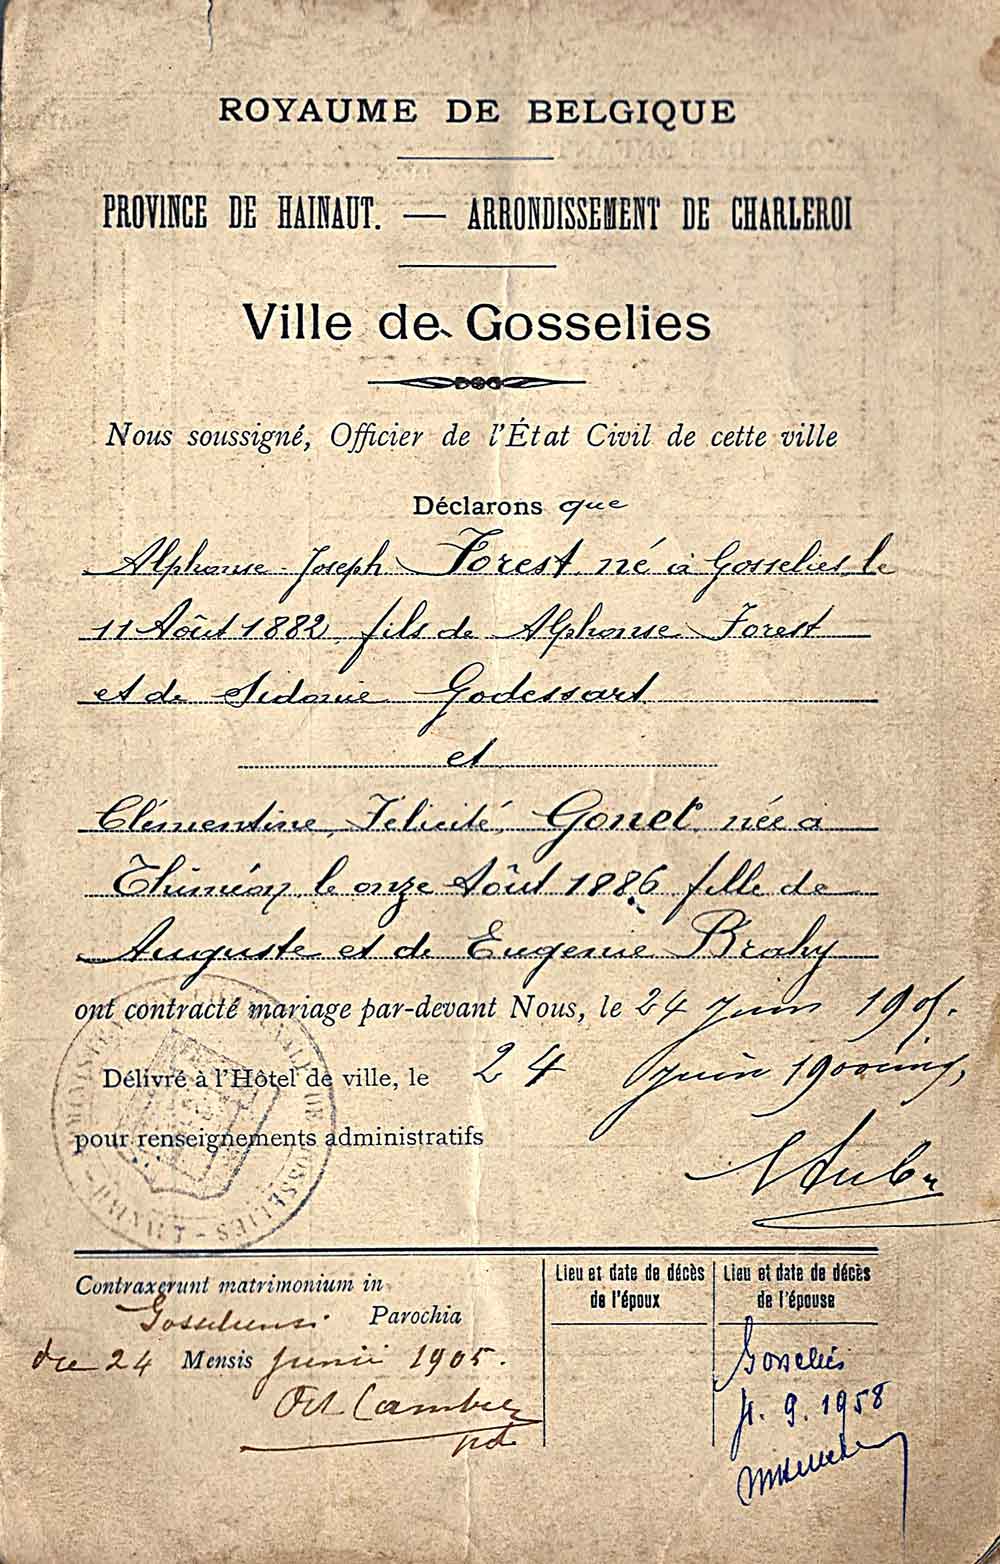 ROYAUME DE BELGIQUE
PROVINCE DE HAINAUT. — ARRONDISSEMENT DE CHARLEROI
Ville de Gosselies
Nous soussigné, Officier de l'État Civil de cette ville
Déclarons que
Alphonse Joseph Forest né à Gosselies, le
11 Août 1882 fils de Alphonse Forest
et de Sidonie Godessart
et
Clémentine, Félicité, Gonet, née a
Thiméon, le onze Août 1886 fille de
Auguste et de Eugenie Brahy
ont contracté mariage par-devant Nous, le 24 juin 1905.
Délivré à l'Hôtel de ville, le 24 juin 1900cinq,
pour renseignements administratifs
Contraxerunt matrimonium in
Parochia
die 24 Mensis Junii 1905.
Lieu et date de décès
de l'époux
Lieu et date de décès
de l'épouse
Gosselies
9. 1958